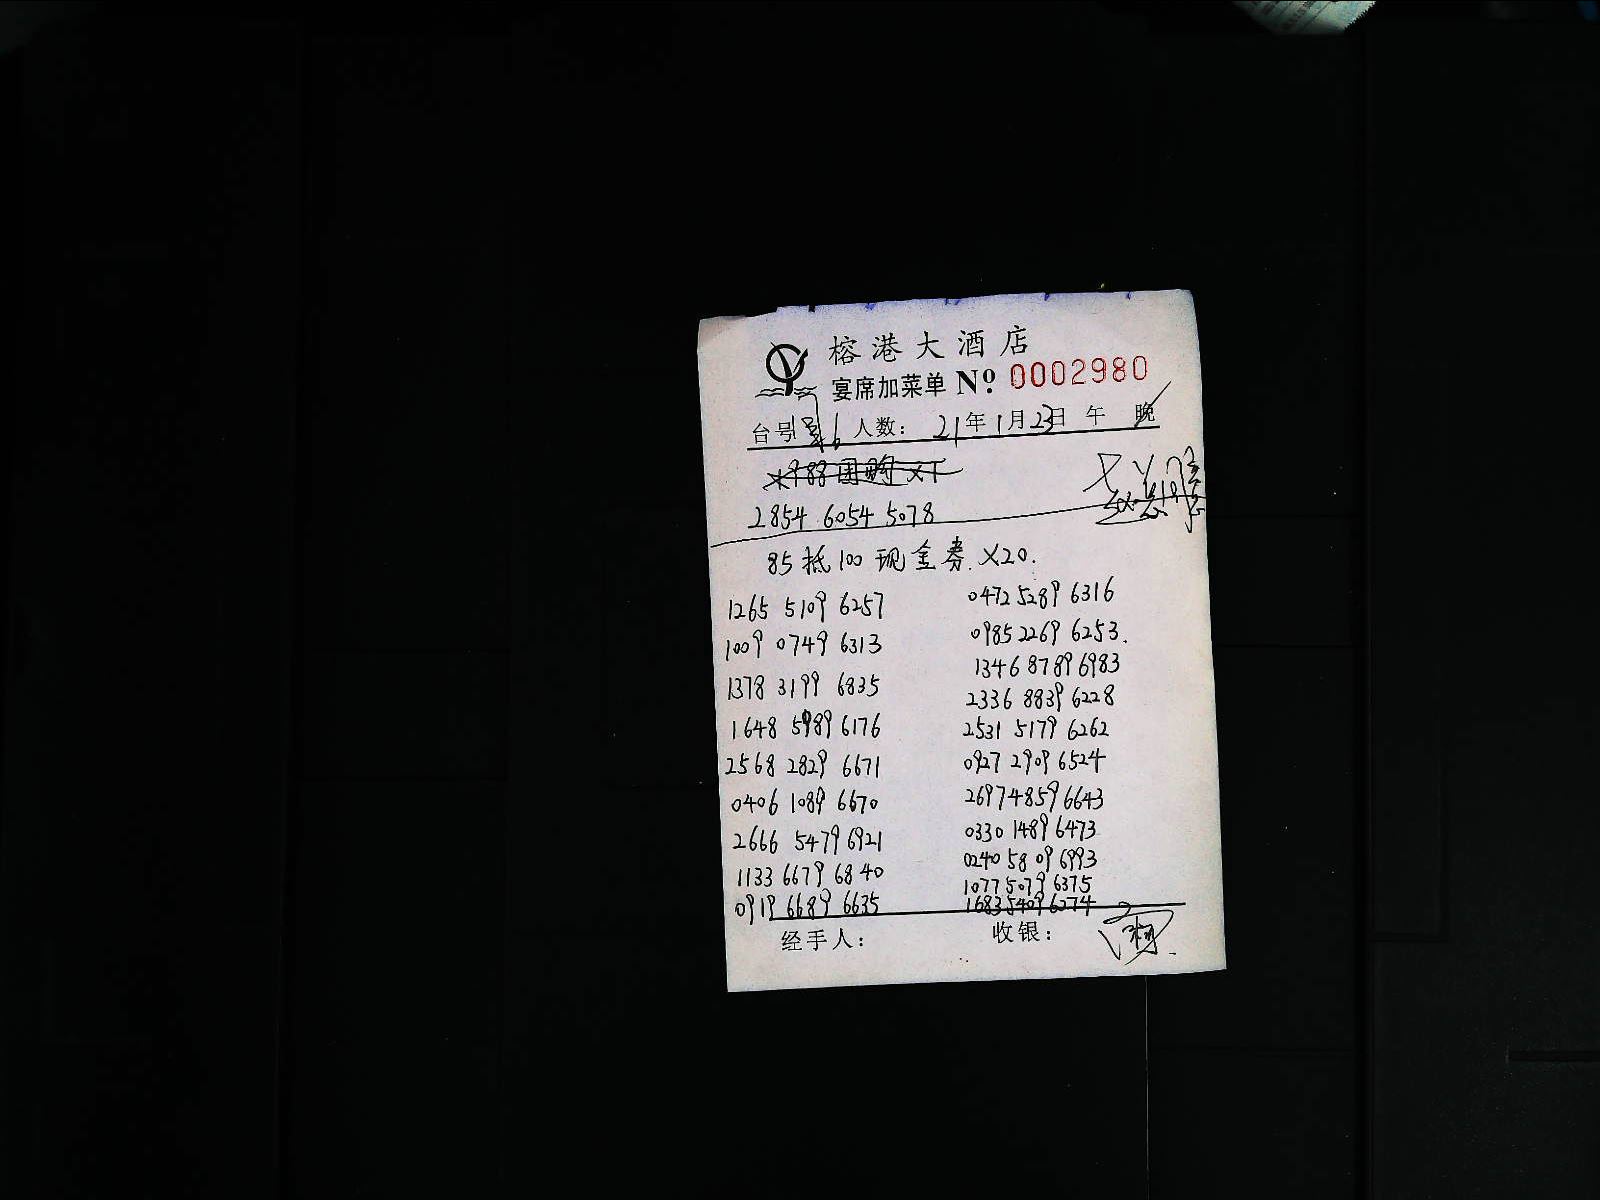 榕港大酒店
宴席加菜单 Nº 0002980
台号 6 人数: 21年1月23日 午 晚
988团购 X1
2854 6054 5078
85抵100现金券. X20.
1265 5109 6257 0472 5289 6316
1009 0749 6313 0985 2269 6253.
1378 3199 6835 1346 8789 6983
1648 5989 6176 2336 8839 6228
2568 2829 6671 2531 5179 6262
0406 1089 6670 0927 2909 6524
2666 5479 6921 2697 4859 6643
1133 6679 6840 0330 1489 6473
0919 6689 6635 0240 5809 6993
1077 5079 6375
1683 5409 6274
经手人: 收银: